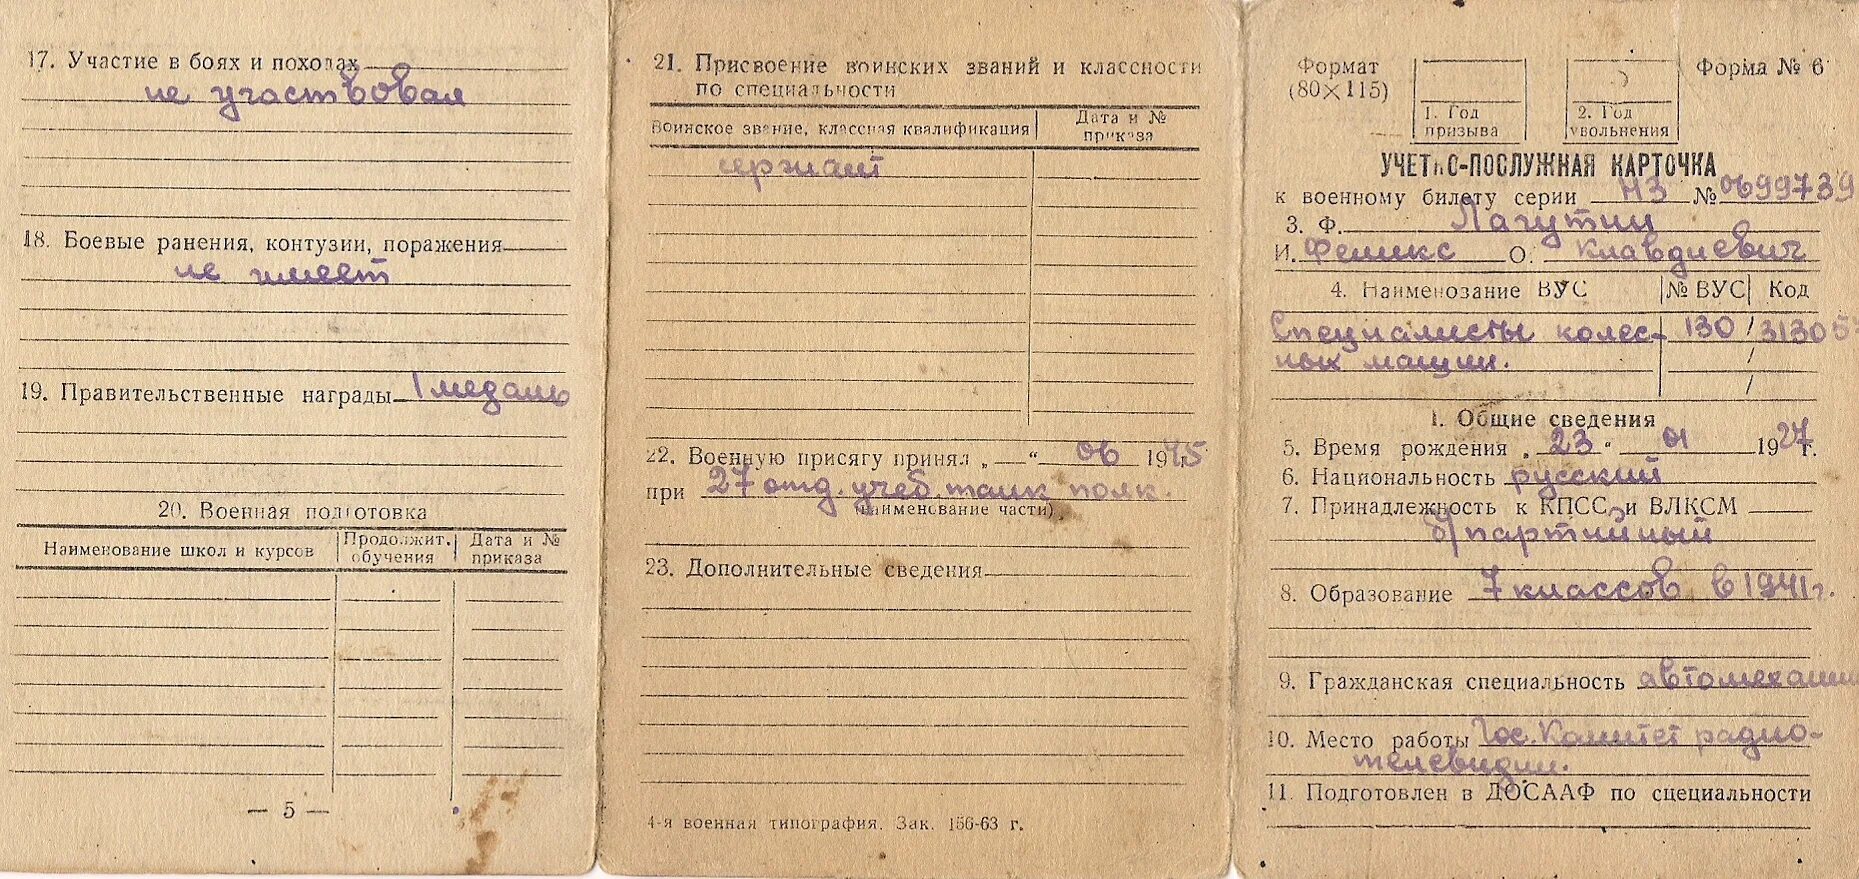 17. Участие в боях и походах
не участвовал
18. Боевые ранения, контузии, поражения
не имеет
19. Правительственные награды 1 медаль
20. Военная подготовка
Наименование школ и курсов
Продолжит. обучения
Дата и № приказа
— 5 —
21. Присвоение воинских званий и классности
по специальности
Воинское звание, классная квалификация
Дата и № приказа
сержант
22. Военную присягу принял „ — “ 06 1945
при 27 отд. учеб. танк полк.
(наименование части)
23. Дополнительные сведения
4-я военная типография. Зак. 156-63 г.
Формат
(80×115)
1. Год
призыва
2. Год
увольнения
Форма № 6
УЧЕТНО-ПОСЛУЖНАЯ КАРТОЧКА
к военному билету серии НЗ № 0699739
3. Ф. Лагутин
И. Феликс О. Клавдиевич
4. Наименование ВУС № ВУС Код
Специалисты колес- 130 / 31305
ных машин. /
/
1. Общие сведения
5. Время рождения „ 23 “ 01 1927 г.
6. Национальность русский
7. Принадлежность к КПСС и ВЛКСМ
б/партийный
8. Образование 7 классов в 1941 г.
9. Гражданская специальность автомеханик
10. Место работы Гос. Комитет радио-
телевидии.
11. Подготовлен в ДОСААФ по специальности